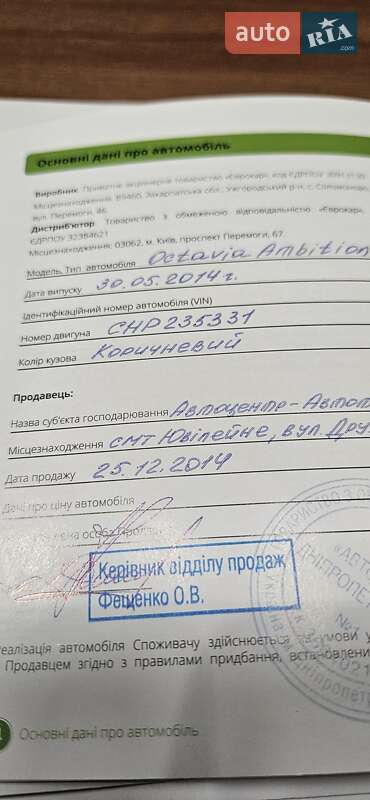 auto RIA .com
Основні дані про автомобіль
Виробник: Приватне акціонерне товариство «Єврокар», код ЄДРПОУ
Місцезнаходження: 89460, Закарпатська обл., Ужгородський р-н, с. Соломоново,
вул. Перемоги, 46.
Дистриб'ютор: Товариство з обмеженою відповідальністю «Єврокар»,
ЄДРПОУ 32384621
Місцезнаходження: 03062, м. Київ, проспект Перемоги, 67.
Модель. Тип автомобіля Octavia Ambition
Дата випуску 30.05.2014 г.
Ідентифікаційний номер автомобіля (VIN)
Номер двигуна CHP235331
Колір кузова Коричневий
Продавець:
Назва суб'єкта господарювання Автоцентр-Автоп
Місцезнаходження смт Ювілейне, вул. Дру
Дата продажу 25.12.2014
Дані про ціну автомобіля
Керівник відділу продаж
Фещенко О.В.
реалізація автомобіля Споживачу здійснюється за умови
Продавцем згідно з правилами придбання, встановлени
Основні дані про автомобіль